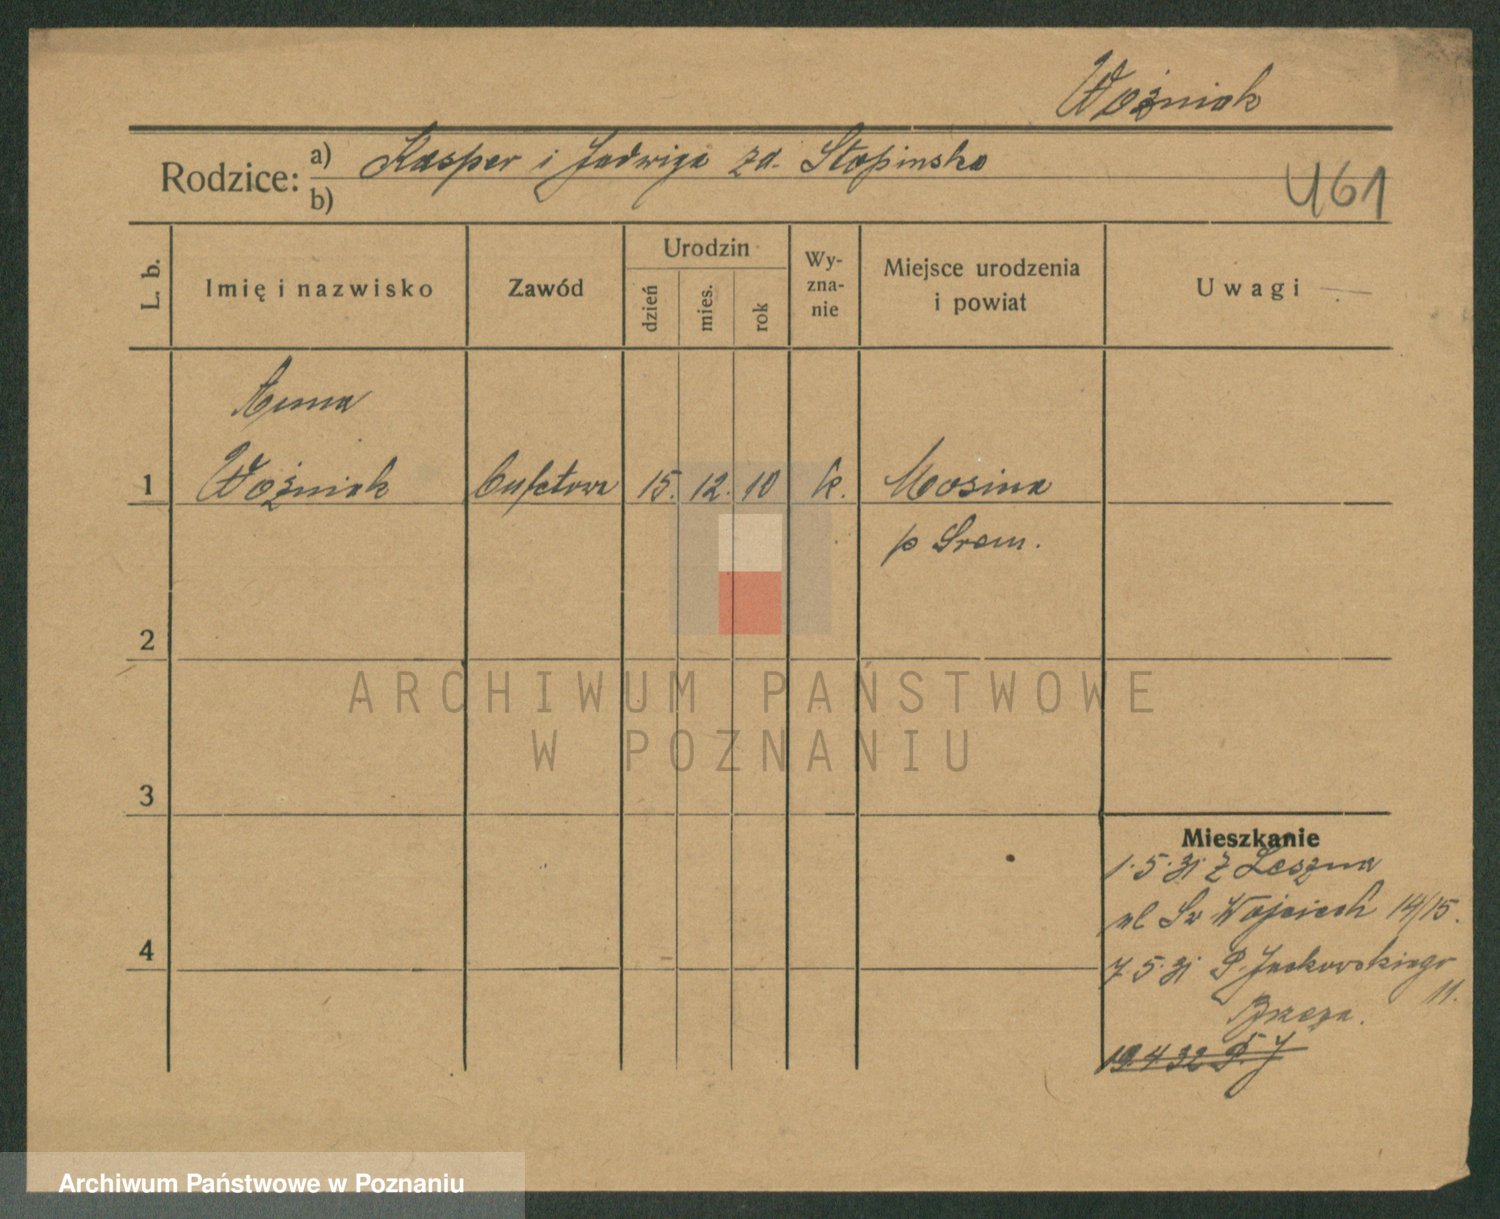 Woźniak
Rodzice: a) Kasper i Jadwiga zd. Stopinska
b)
U61
L. b.
Imię i nazwisko
Zawód
Urodzin
dzień
mies.
rok
Wy-
zna-
nie
Miejsce urodzenia
i powiat
Uwagi
Anna
1 Woźniak bufetowa 15. 12. 10 k. Mosina
p Srem.
2
ARCHIWUM PAŃSTWOWE
W POZNANIU
3
Mieszkanie
1.5.31 z Leszna
ul Sw Wojciech 14/15.
4
7.5.31 P. Jackowskiego
11.
19.4 32 P. J
Archiwum Państwowe w Poznaniu